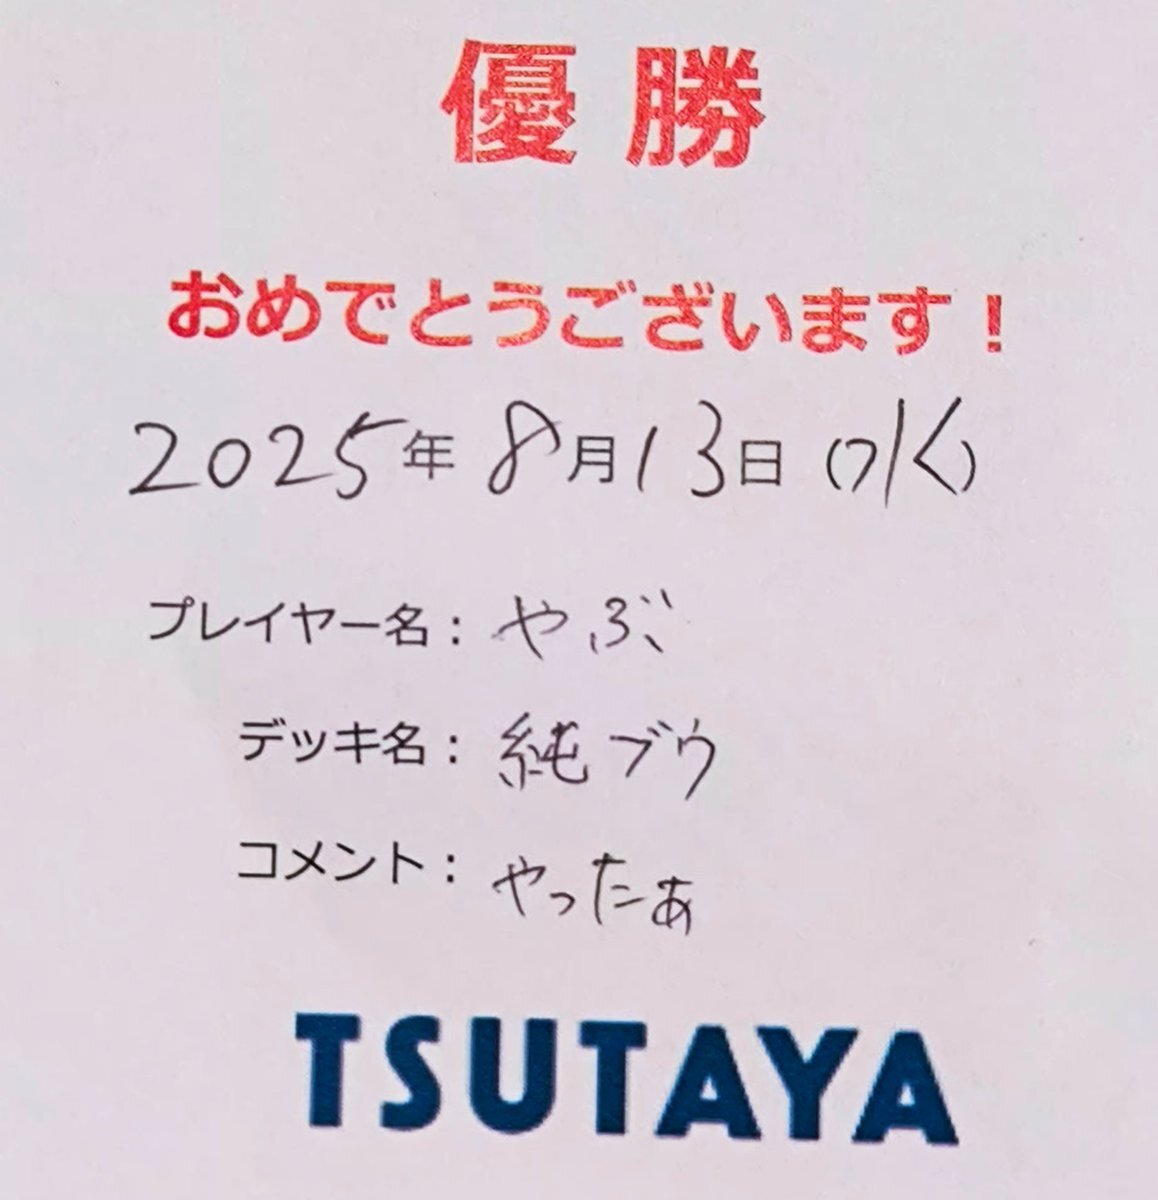 優勝
おめでとうございます！
2025年 8月13日 (水)
プレイヤー名： やぶ
デッキ名： 純ブウ
コメント： やったぁ
TSUTAYA